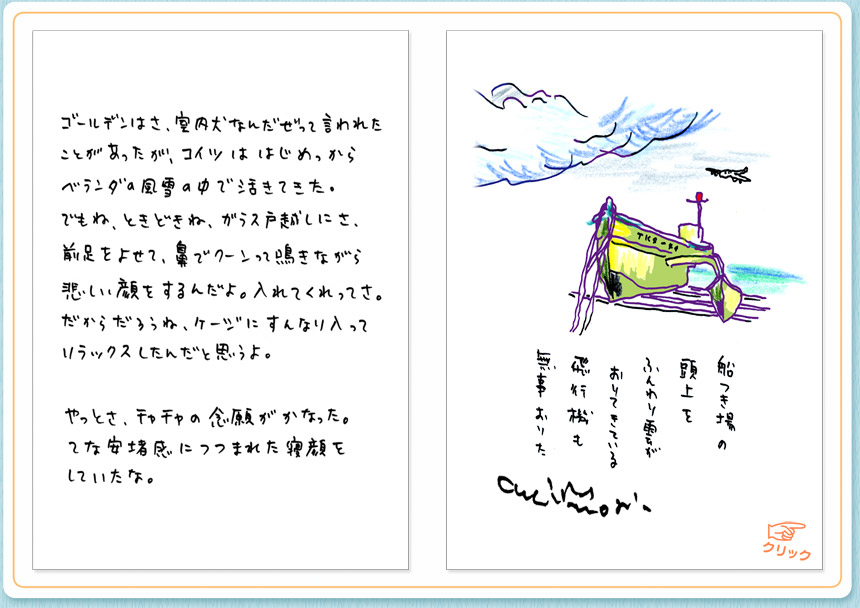 ゴールデンはさ、室内犬なんだぜって言われた
ことがあったが、コイツは はじめっから
ベランダの風雪の中で活きてきた。
でもね、ときどきね、がラス戸越しにさ、
前足をよせて、鼻でクーンって鳴きながら
悲しい顔をするんだよ。入れてくれってさ。
だからだろうね、ケージにすんなり入って
リラックスしたんだと思うよ。
やっとさ、チャチャの念願がかなった。
てな安堵感につつまれた寝顔を
していたな。
船つき場の
頭上を
ふんわり雲が
おりてきている
飛行機も
無事おりた
クリック